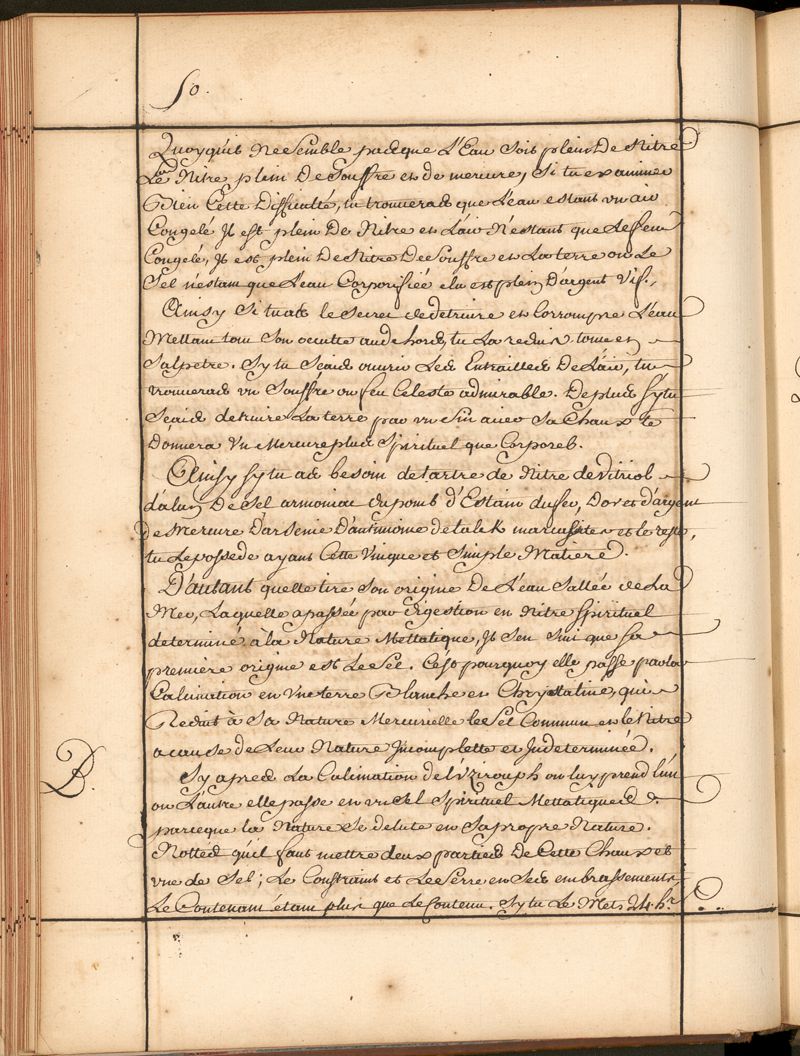 50.
Quoyqu'il Ne Semble pas que L'Eau Soit plein De Nitre
Le Nitre plein De Souffre et de mercure, Si tu examines
Bien Cette Difficulté, tu trouueras que L'eau estant vn air
Congelé Jl est plein De Nitre et L'air N'estant que Le feu
Congelé, Jl est plein De Nitre De Souffre et La terre ou Le
Sel n'estant que L'eau Corporifiée elle est plein D'argent Vif.
Ainsy Si tu as le Secret de detruire et Corrompre L'eau
Mettant tout Son occulte au dehors, tu La reduis toute en
Salpetre. Sy tu Scais ouurir Les Entrailles De L'air, tu
trouueras vn Souffre ou feu Celeste admirable. De plus Sy tu
Scais detruire La terre par vn feu auec Sa Chaux te
Donnera Vn Mercure plus Spirituel que Corporel.
Ainsy Sy tu as besoin de tartre de Nitre de Vitriol
d'alun De Sel armoniac du pomb d'Estain du feu, Dor et d'argent
de Mercure D'arsenic D'antimoine de talck marcassites et le reste,
tu Le possede ayant Cette Vnique et Simple Matiere.
D'autant quelle tire Son origine De L'eau Sallée de La
Mer, Laquelle a passée par Digestion en Nitre Spirituel
determiné à la Nature Mettatique, Jl Sen Suit que Sa
première origine est Le Sel. C'est pourquoy elle passe par la
Calcination en Vne terre Blanche et Chrystaline, qui
Reduit à Sa Nature Mercurielle le Sel Commun et le Nitre
a cause de Leur Nature Jncomplette et Jndeterminée.
B.
Sy apres La Calcination de ou luy prend L'un
ou L'autre elle passe en vn Sel Spirituel Mettatique
parceque la Nature Se delute en Sa propre Nature.
Nottes qu'il faut mettre deux parties De Cette Chaux et
vne de Sel; Le Constraint et Le Serre en Ses embrassements,
Le Contenant étant plus que Le Contenu. Sy tu Le Mets 24 h.rs